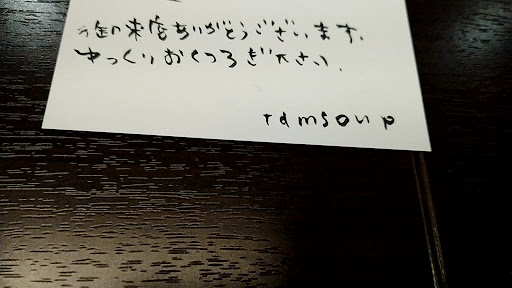 御来店ありがとうございます.
ゆっくりおくつろぎ下さい.
ramsoup